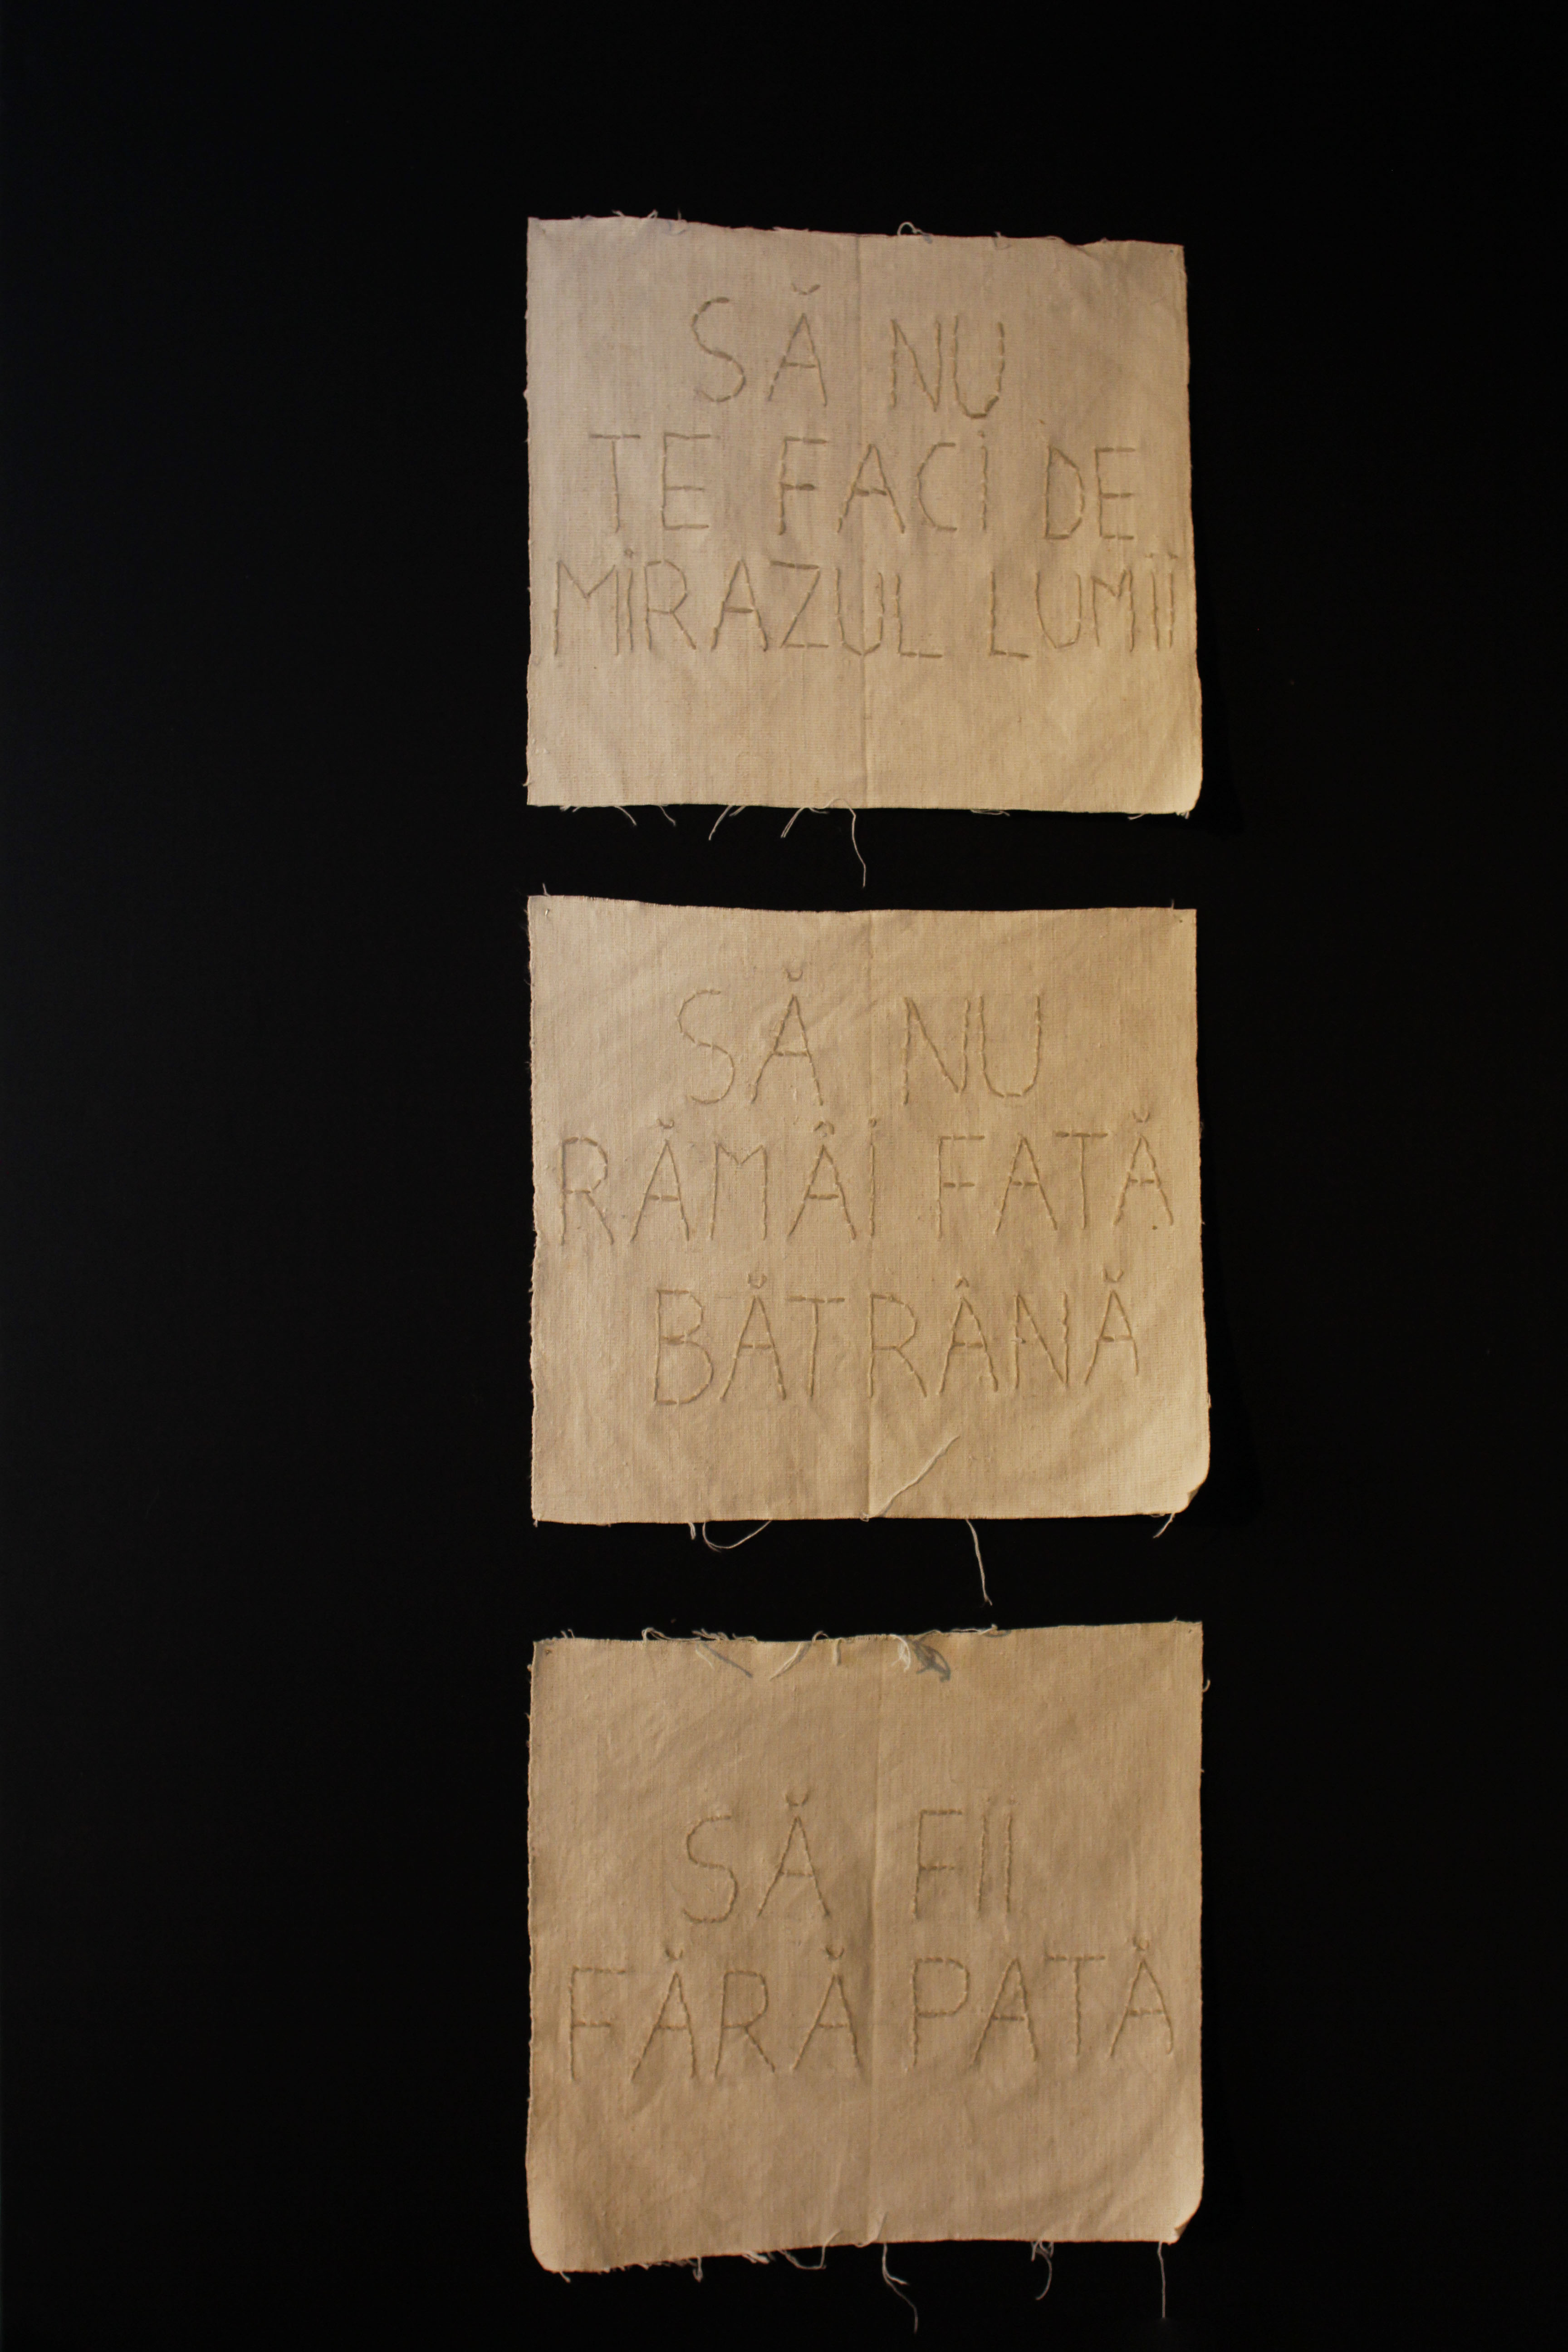 SĂ NU
TE FACI DE
MIRAZUL LUMII
SĂ NU
RĂMÂI FATĂ
BĂTRÂNĂ
SĂ FII
FĂRĂ PATĂ